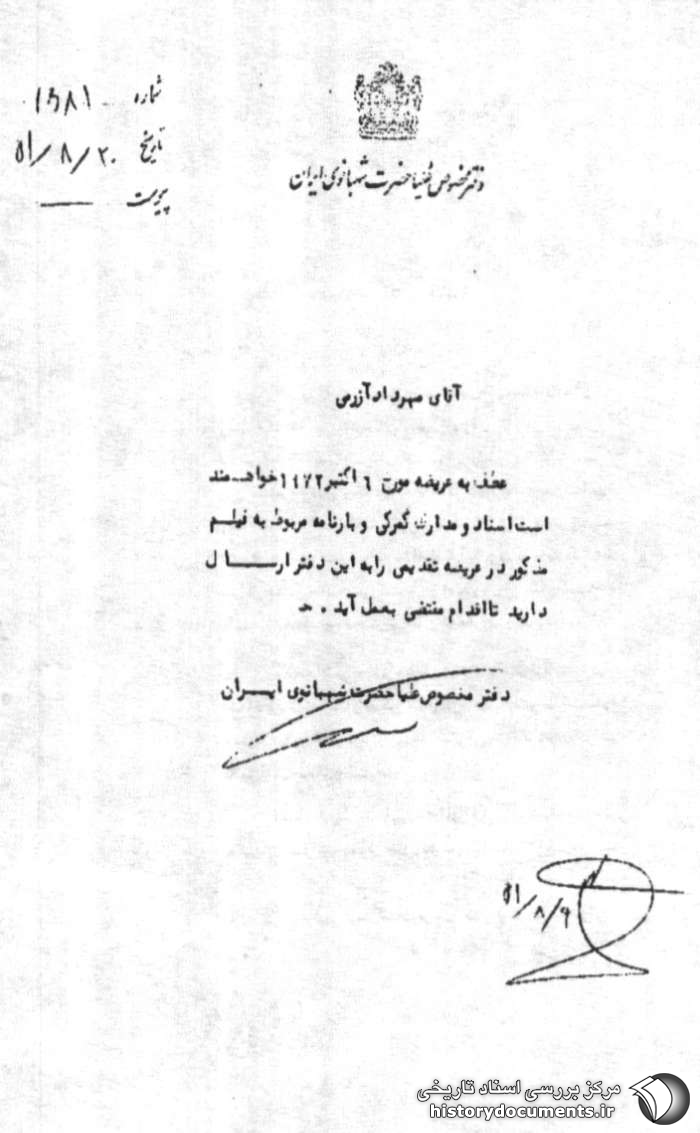 شماره ۱۵۸۱
تاریخ ۵۱/۸/۲۰
پیوست ——
دفتر مخصوص علیاحضرت شهبانوی ایران
آقای مهرداد آزرمی
عطف به عریضه مورخ ۶ اکتبر ۱۹۷۲ خواهشمند
است اسناد و مدارک گمرکی و بارنامه مربوط به فیلم
مذکور در عریضه تقدیمی را به این دفتر ارسال
دارید تا اقدام مقتضی بعمل آید .
دفتر مخصوص علیاحضرت شهبانوی ایران
۵۱/۸/۹
مرکز بررسی اسناد تاریخی
historydocuments.ir